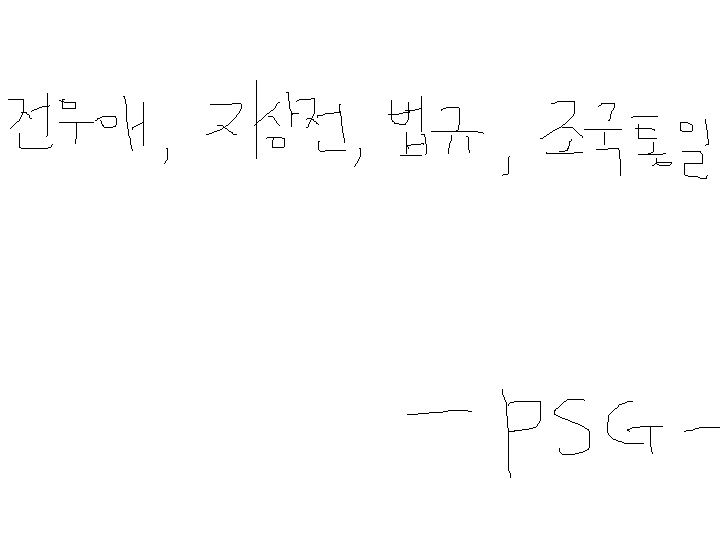 전우애, 지상전, 법규, 조국통일
- PSG -